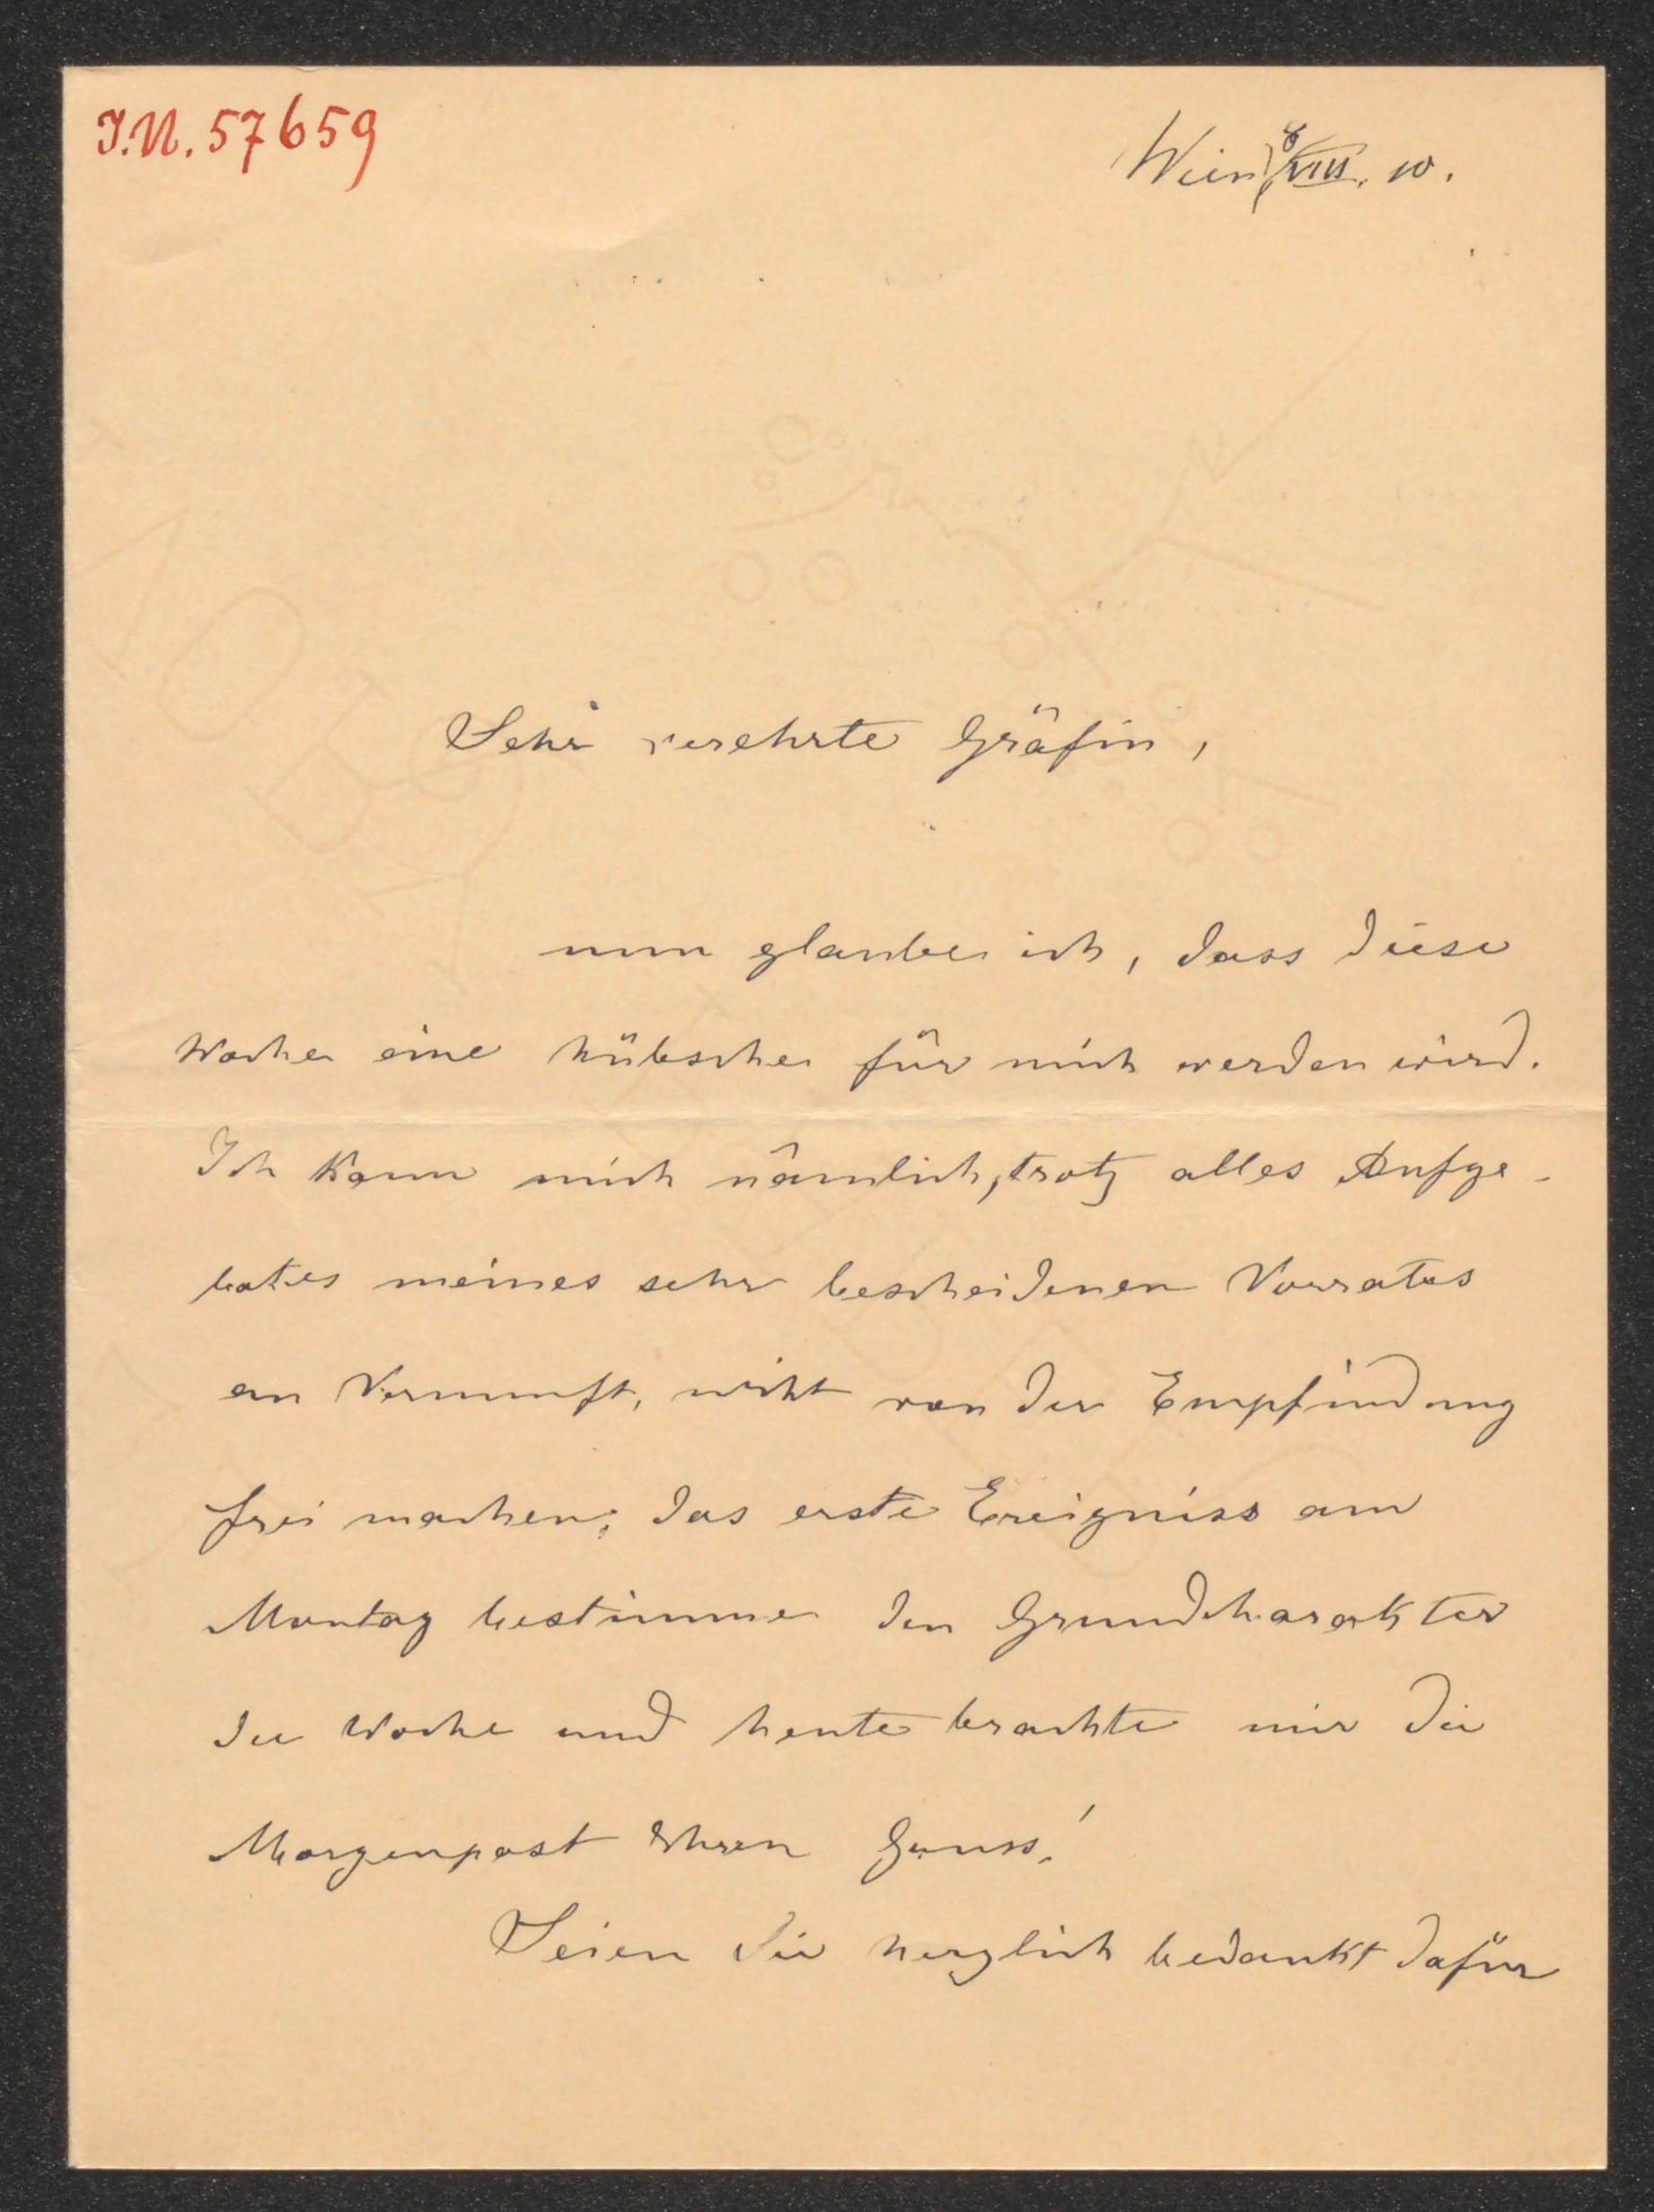 J.N. 57659
Wien, 8/VIII. 10.
Sehr verehrte Gräfin,
nun glaube ich, dass diese
Woche eine hübsche für mich werden wird.
Ich kann mich nämlich, trotz alles Aufge-
botes meines sehr bescheidenen Vorrates
an Vernunft, nicht von der Empfindung
frei machen, das erste Ereigniss am
Montag bestimme den Grundcharakter
der Woche und heute brachte mir die
Morgenpost Ihren Gruss!
Seien Sie herzlich bedankt dafür